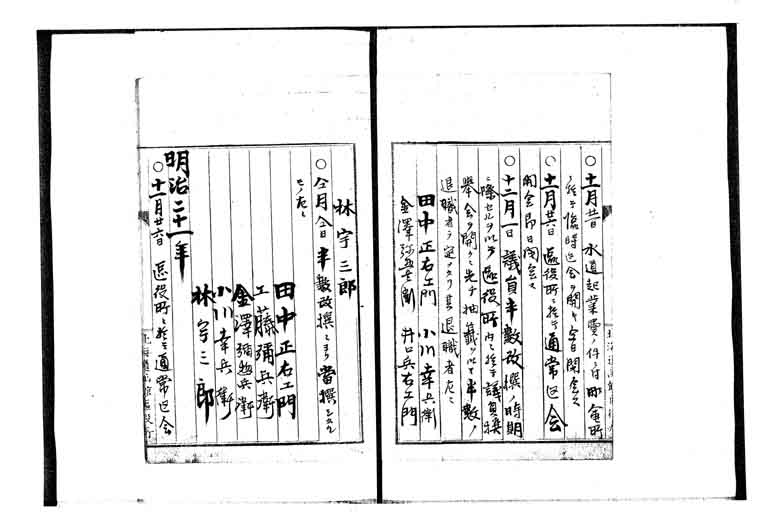 ○十一月廿日 水道起業費ノ件ニ付同会所
ニ於テ臨時区会ヲ開キ今日閉会ス
○十一月廿六日 区役所ニ於テ通常区会
開会即日閉会ス
○十二月一日 議員半数改撰ノ時期
ニ際セルヲ以テ区役所内ニ於テ議員撰
挙会ヲ開ク先チ抽籤ヲ以テ半数ノ
退職者ヲ定メタリ其退職者左ニ
田中正右エ門 小川幸兵衛
金澤彌惣兵衛 井口兵右エ門
林宇三郎
○仝月仝日 半数改撰ニヨリ当撰シタル
モノ左ニ
田中正右エ門
工藤彌兵衛
金澤彌惣兵衛
小川幸兵衛
林宇三郎
明治二十一年
○十二月廿六日 区役所ニ於テ通常区会